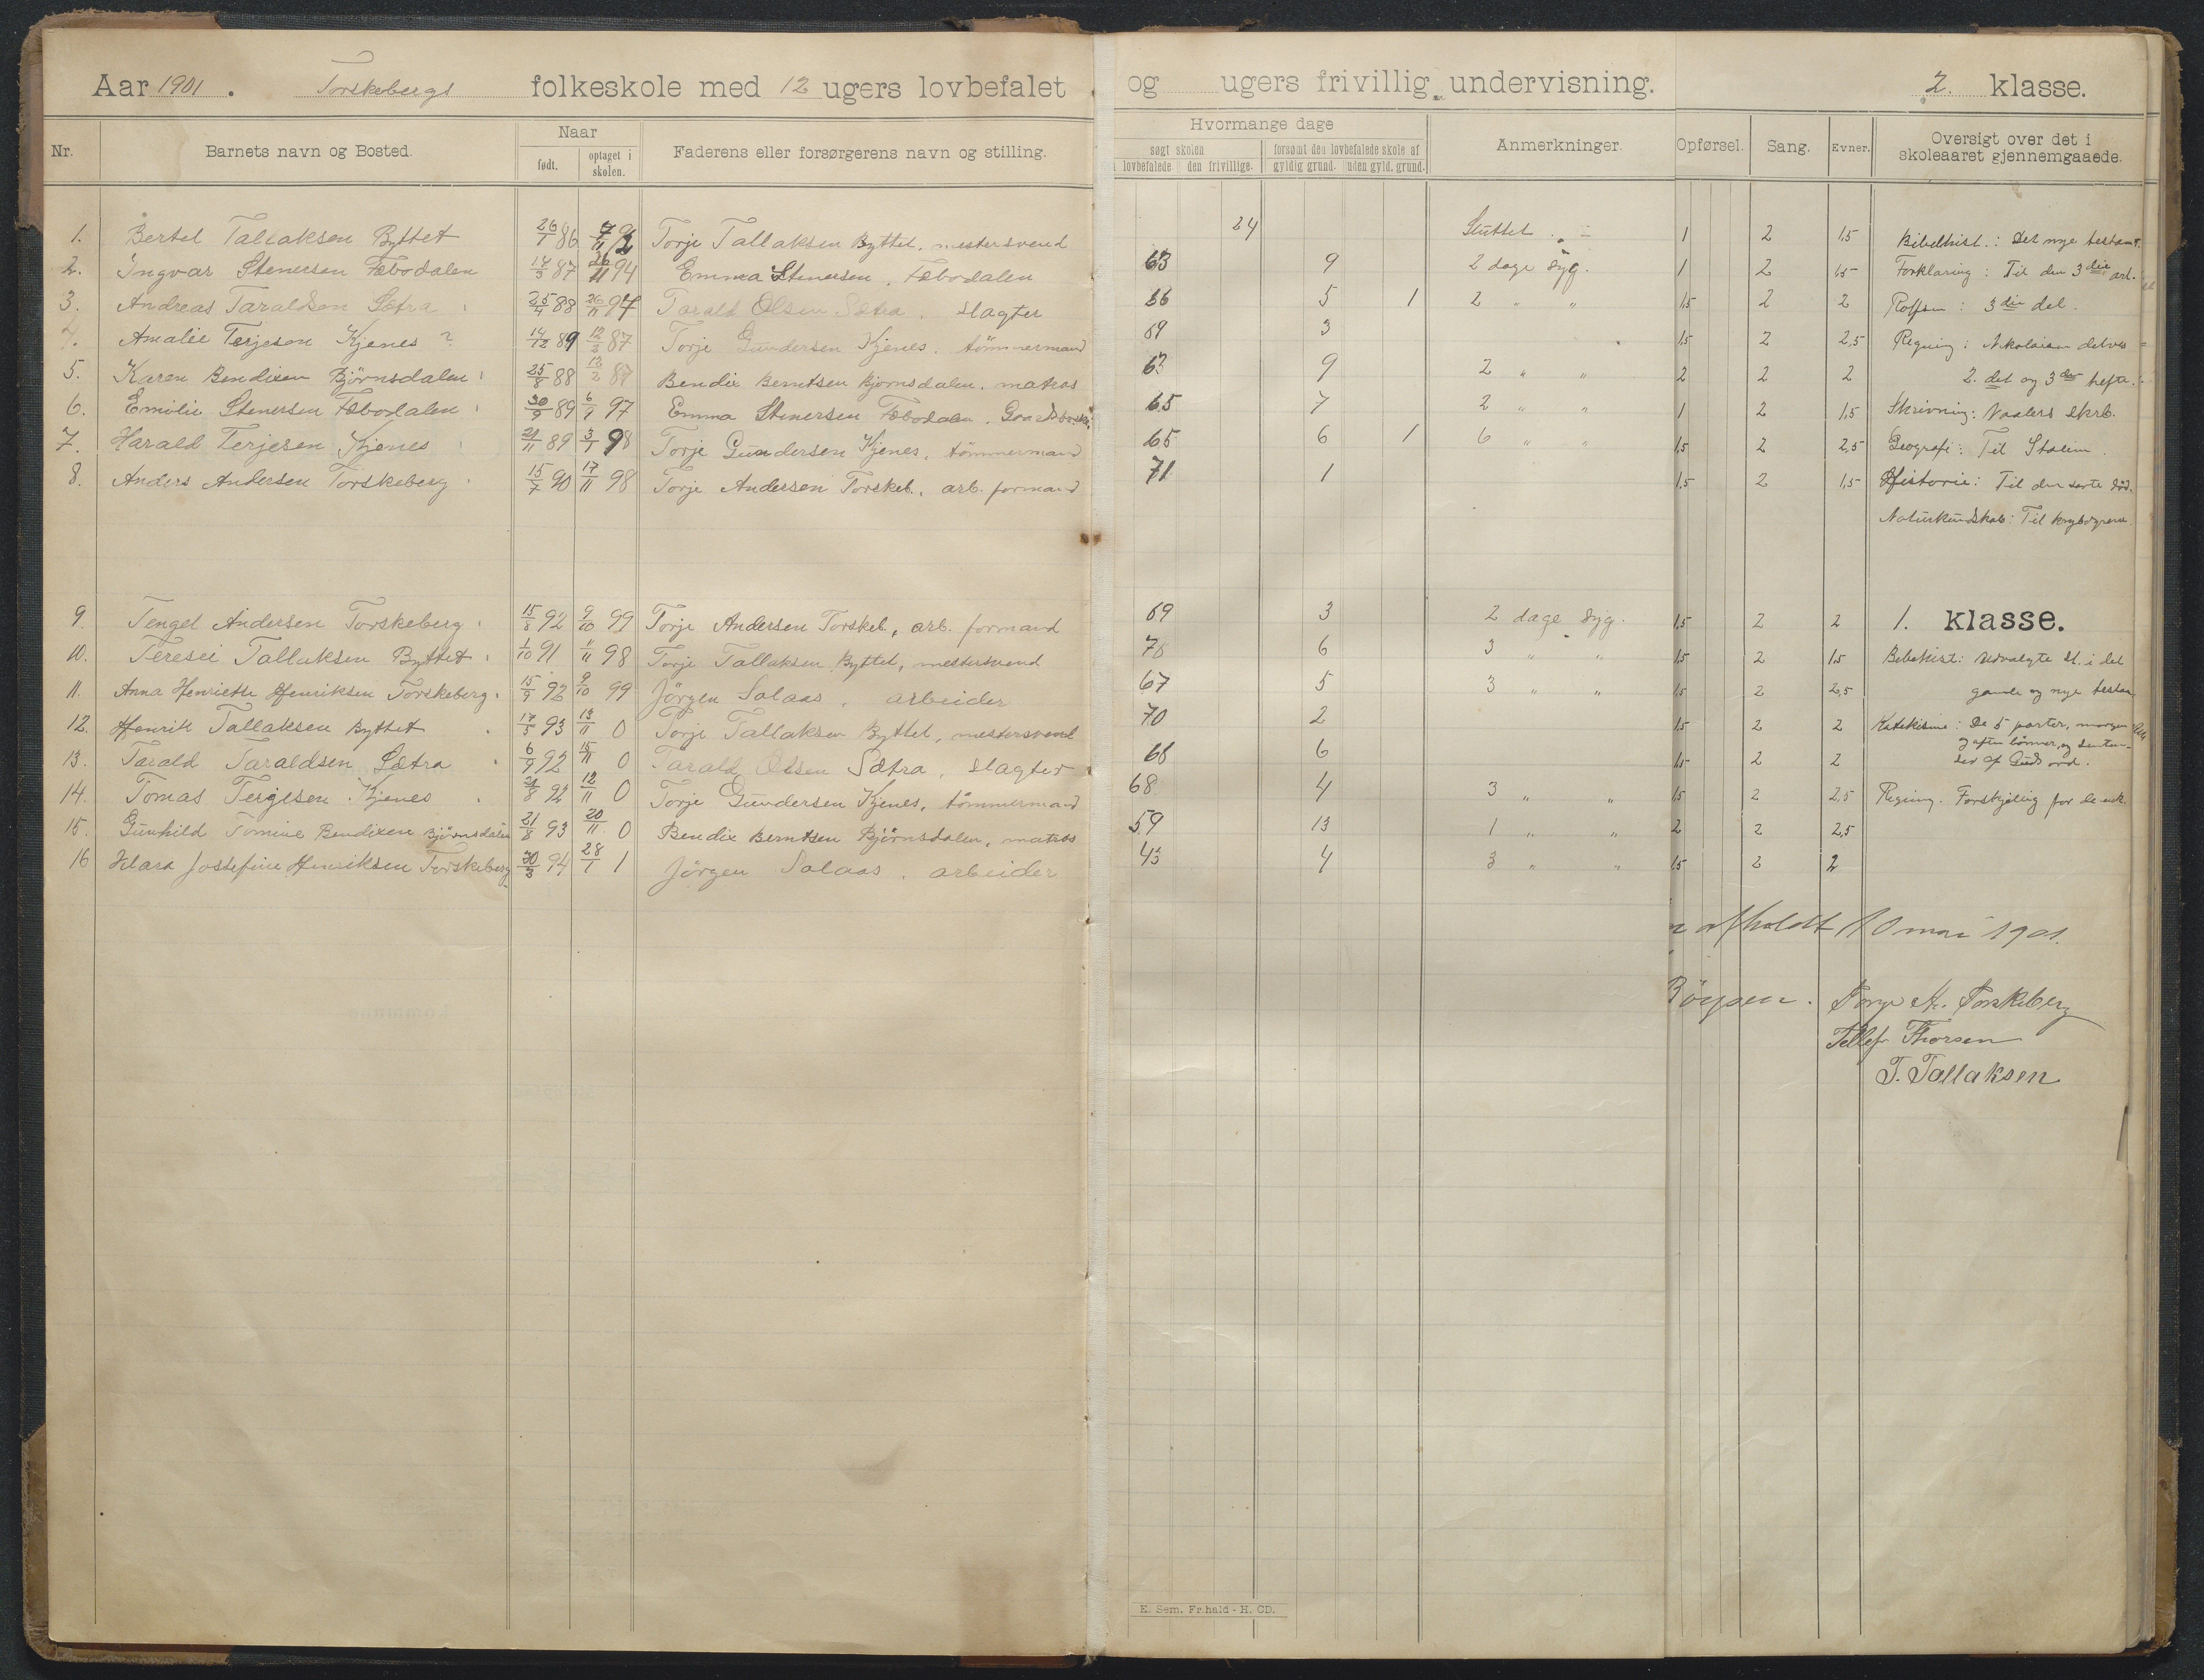 Aar 1901. Torskebergs folkeskole med 12 ugers lovbefalet og ugers frivillig undervisning. 2. klasse.
Nr. Barnets navn og Bosted. Naar født. optaget i skolen. Faderens eller forsørgerens navn og stilling. Hvormange dage søgt skolen lovbefalede den frivillige. forsømt den lovbefalede skole af gyldig grund. uden gyld. grund. Anmerkninger. Opførsel. Sang. Evner. Oversigt over det i skoleaaret gjennemgaaede.
1. Bertel Tallaksen Byttet 26/1 86 Torje Tallaksen Byttet, mestersvend 24 Sluttet 1 2 1,5 Bibelhist.: Det nye testam.
2. Ingvar Stenersen Fæbodalen 14/3 87 94 Emma Stenersen, Fæbodalen 63 9 2 dage syg. 1 2 1,5 Forklaring: Til den 3die art.
3. Andreas Taraldsen Sætra 25/4 88 26/11 97 Tarald Olsen Sætra, slagter 66 5 1 2 " " 1,5 2 2 Rolfsen: 3die del.
4. Amalie Terjesen Kjenes ? 14/12 89 12/2 87 Torje Gundersen Kjenes, tömmermand 69 3 1,5 2 2,5 Regning: Nikolaisen
5. Karen Bendixen Björnsdalen 25/8 88 12/2 87 Bendix Berntsen Björnsdalen, matros 63 9 2 " " 2 2 2 2. det og 3die hefte.
6. Emilie Stenersen Fæbodalen 30/9 89 97 Emma Stenersen Fæbodalen, 65 7 2 " " 1 2 1,5 Skrivning: Vaalers skrb.
7. Harald Terjesen Kjenes 21/11 89 3/1 98 Torje Gundersen Kjenes, tömmermand 65 6 1 6 " " 1,5 2 2,5 Geografi: Til Italien.
8. Anders Andersen Torskeberg 15/7 90 17/11 98 Torje Andersen Torskeb., arb. formand 71 1 1,5 2 1,5 Historie: Til den sorte död.
Naturkundskab: Til krybdyrene.
9. Tengel Andersen Torskeberg 15/8 92 9/10 99 Torje Andersen Torskeb., arb. formand 69 3 2 dage syg. 1,5 2 2 1. klasse.
10. Teresei Tallaksen Byttet 1/10 91 1/11 98 Torje Tallaksen Byttet, mestersvend 6 3 " " 1,5 2 1,5 Bibelhist: Udvalgte st. i det
11. Anna Henriette Henriksen Torskeberg. 15/9 92 9/10 99 Jörgen Salaas, arbeider 67 5 3 " " 1,5 2 2,5 gamle og nye testam
12. Henrik Tallaksen Byttet 17/5 93 13/11 0 Torje Tallaksen Byttet, mestersvend 70 2 1,5 2 2 Katekisme: De 5 parter, morgen
og aften bönner, og senten-
13. Tarald Taraldsen Sætra 6/9 92 15/11 0 Tarald Olsen Sætra, slagter 68 6 1,5 2 2 ser af Guds ord.
14. Tomas Terjesen Kjenes 21/8 92 12/11 0 Torje Gundersen Kjenes, tömmermand 68 4 3 " " 1,5 2 2,5 Regning. Forskjellig for de enk.
15. Gunhild Tomine Bendixen Björnsdalen 21/8 93 20/11 0 Bendix Berntsen Björnsdalen, matros 59 13 1 " " 2 2 2,5
16 Klara Jossefine Henriksen Torskeberg 30/3 94 28/1 1 Jörgen Salaas, arbeider 43 4 3 " " 1,5 2 2
afholdt 10 mai 1901.
Börgsen. Torje A. Torskeberg
Tellef Thorsen
T. Tallaksen
E. Sem. Fr.hald - H. CD.